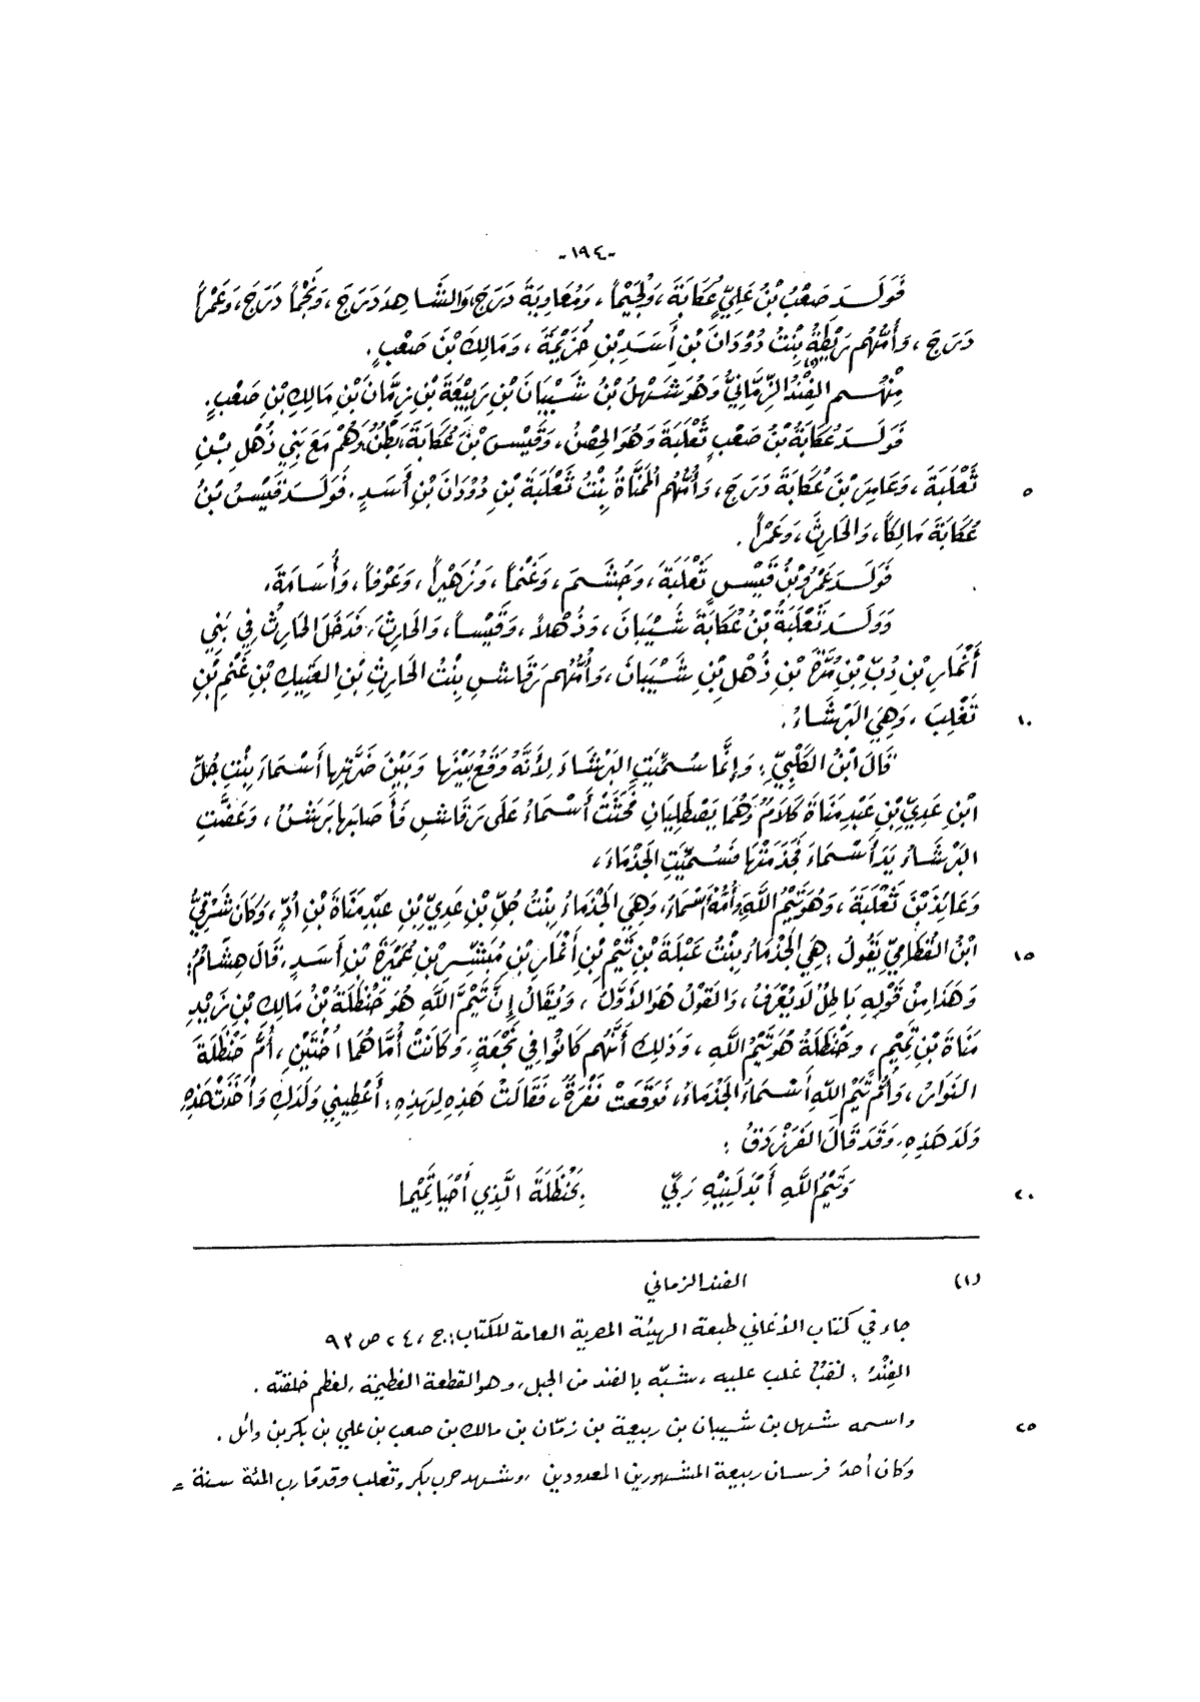 -١٩٤-
فَوَلَدَ صَعْبُ بْنُ عَلِيٍّ عُكَابَةَ، وَلُجَيْماً، وَمُعَاوِيَةَ دَرَجَ، وَالشَّاهِدَ دَرَجَ، وَنَجْماً دَرَجَ، وَعَمْراً
دَرَجَ، وَأُمُّهُم رَيْطَةُ بِنْتُ دُوْدَانَ بْنِ أَسَدِ بْنِ خُزَيْمَةَ، وَمَالِكَ بْنَ صَعْبٍ.
مِنْهُم الفِنْدُ الزِّمَّانِيُّ (١) وَهُوَ شَهْلُ بْنُ شَيْبَانَ بْنِ رَبِيْعَةَ بْنِ زِمَّانَ بْنِ مَالِكِ بْنِ صَعْبٍ.
فَوَلَدَ عُكَابَةُ بْنُ صَعْبٍ ثَعْلَبَةَ وَهُوَ الحِصْنُ، وَقَيْسَ بْنَ عُكَابَةَ، بَطْنٌ، وَهُمْ مَعَ بَنِي ذُهْلِ بْنِ
ثَعْلَبَةَ، وَعَامِرَ بْنَ عُكَابَةَ دَرَجَ، وَأُمُّهُم المَمْنَاةُ بِنْتُ ثَعْلَبَةَ بْنِ دُوْدَانَ بْنِ أَسَدٍ. فَوَلَدَ قَيْسُ بْنُ ٥
عُكَابَةَ مَالِكاً، وَالحَارِثَ، وَعَمْراً.
فَوَلَدَ عَمْرُو بْنُ قَيْسٍ ثَعْلَبَةَ، وَجُشَمَ، وَغَنْماً، وَزُهَيْراً، وَعَوْفاً، وَأُسَامَةَ.
وَوَلَدَ ثَعْلَبَةُ بْنُ عُكَابَةَ شَيْبَانَ، وَذُهْلاً، وَقَيْساً، وَالحَارِثَ، فَدَخَلَ الحَارِثُ فِي بَنِي
أَنْمَارِ بْنِ دُبِّ بْنِ مُرَّةَ بْنِ ذُهْلِ بْنِ شَيْبَانَ، وَأُمُّهُم رَقَاشِ بِنْتُ الحَارِثِ بْنِ العَتِيكِ بْنِ غَنْمِ بْنِ
تَغْلِبَ، وَهِيَ البَرْشَاءُ. ١٠
قَالَ ابْنُ الكَلْبِيِّ: وَإِنَّمَا سُمِّيَتِ البَرْشَاءَ لِأَنَّهُ وَقَعَ بَيْنَهَا وَبَيْنَ ضَرَّتِهَا أَسْمَاءَ بِنْتِ جُلِّ
ابْنِ عَدِيِّ بْنِ عَبْدِ مَنَاةَ كَلَامٌ وَهُمَا يَصْطَلِيَانِ فَحَثَتْ أَسْمَاءُ عَلَى رَقَاشِ فَأَصَابَهَا بَرَشٌ، وَعَضَّتِ
البَرْشَاءُ يَدَ أَسْمَاءَ فَجَذَمَتْهَا فَسُمِّيَتِ الجَذْمَاءَ،
وَعَائِذَ بْنَ ثَعْلَبَةَ، وَهُوَ تَيْمُ اللَّهِ وَأُمُّهُ أَسْمَاءُ، وَهِيَ الجَذْمَاءُ بِنْتُ جُلِّ بْنِ عَدِيِّ بْنِ عَبْدِ مَنَاةَ بْنِ أُدٍّ، وَكَانَ شَرْقِيُّ
ابْنُ القُطَامِيِّ يَقُولُ: هِيَ الجَذْمَاءُ بِنْتُ عَبْلَةَ بْنِ تَيْمِ بْنِ أَنْمَارِ بْنِ مُبَشِّرِ بْنِ عُمَيْرَةَ بْنِ أَسَدٍ. قَالَ هِشَامٌ: ١٥
وَهَذَا مِنْ قَوْلِهِ بَاطِلٌ لَا يُعْرَفُ، وَالقَوْلُ هُوَ الأَوَّلُ، وَيُقَالُ إِنَّ تَيْمَ اللَّهِ هُوَ حَنْظَلَةُ بْنُ مَالِكِ بْنِ زَيْدِ
مَنَاةَ بْنِ تَمِيْمٍ، وَحَنْظَلَةُ هُوَ تَيْمُ اللَّهِ، وَذَلِكَ أَنَّهُم كَانُوا فِي نُجْعَةٍ، وَكَانَتْ أُمَّاهُمَا أُخْتَيْنِ، أُمُّ حَنْظَلَةَ
النَوَارُ، وَأُمُّ تَيْمِ اللَّهِ أَسْمَاءُ الجَذْمَاءُ، فَوَقَعَتْ نَفْرَةٌ، فَقَالَتْ هَذِهِ لِهَذِهِ: أَعْطِيْنِي وَلَدَكِ وَأَخَذَتْ هَذِهِ
وَلَدَ هَذِهِ. وَقَدْ قَالَ الفَرَزْدَقُ:
وَتَيْمُ اللَّهِ أَبْدَلَنِيْهِ رَبِّي بِحَنْظَلَةَ الَّذِي أَحْيَا تَمِيْمَا ٢٠
(١) الفند الزماني
جاء في كتاب الأغاني طبعة الهيئة المصرية العامة للكتاب: ج، ٢٤ ص ٩٣
الفِنْدُ: لقبٌ غلب عليه، شبّه بالفند من الجبل، وهو القطعة العظيمة، لعظم خلقته.
واسمه شهل بن شيبان بن ربيعة بن زمّان بن مالك بن صعب بن علي بن بكر بن وائل. ٢٥
وكان أحدَ فرسان ربيعة المشهورين المعدودين، وشهد حرب بكر وتغلب وقد قارب المئة سنة =